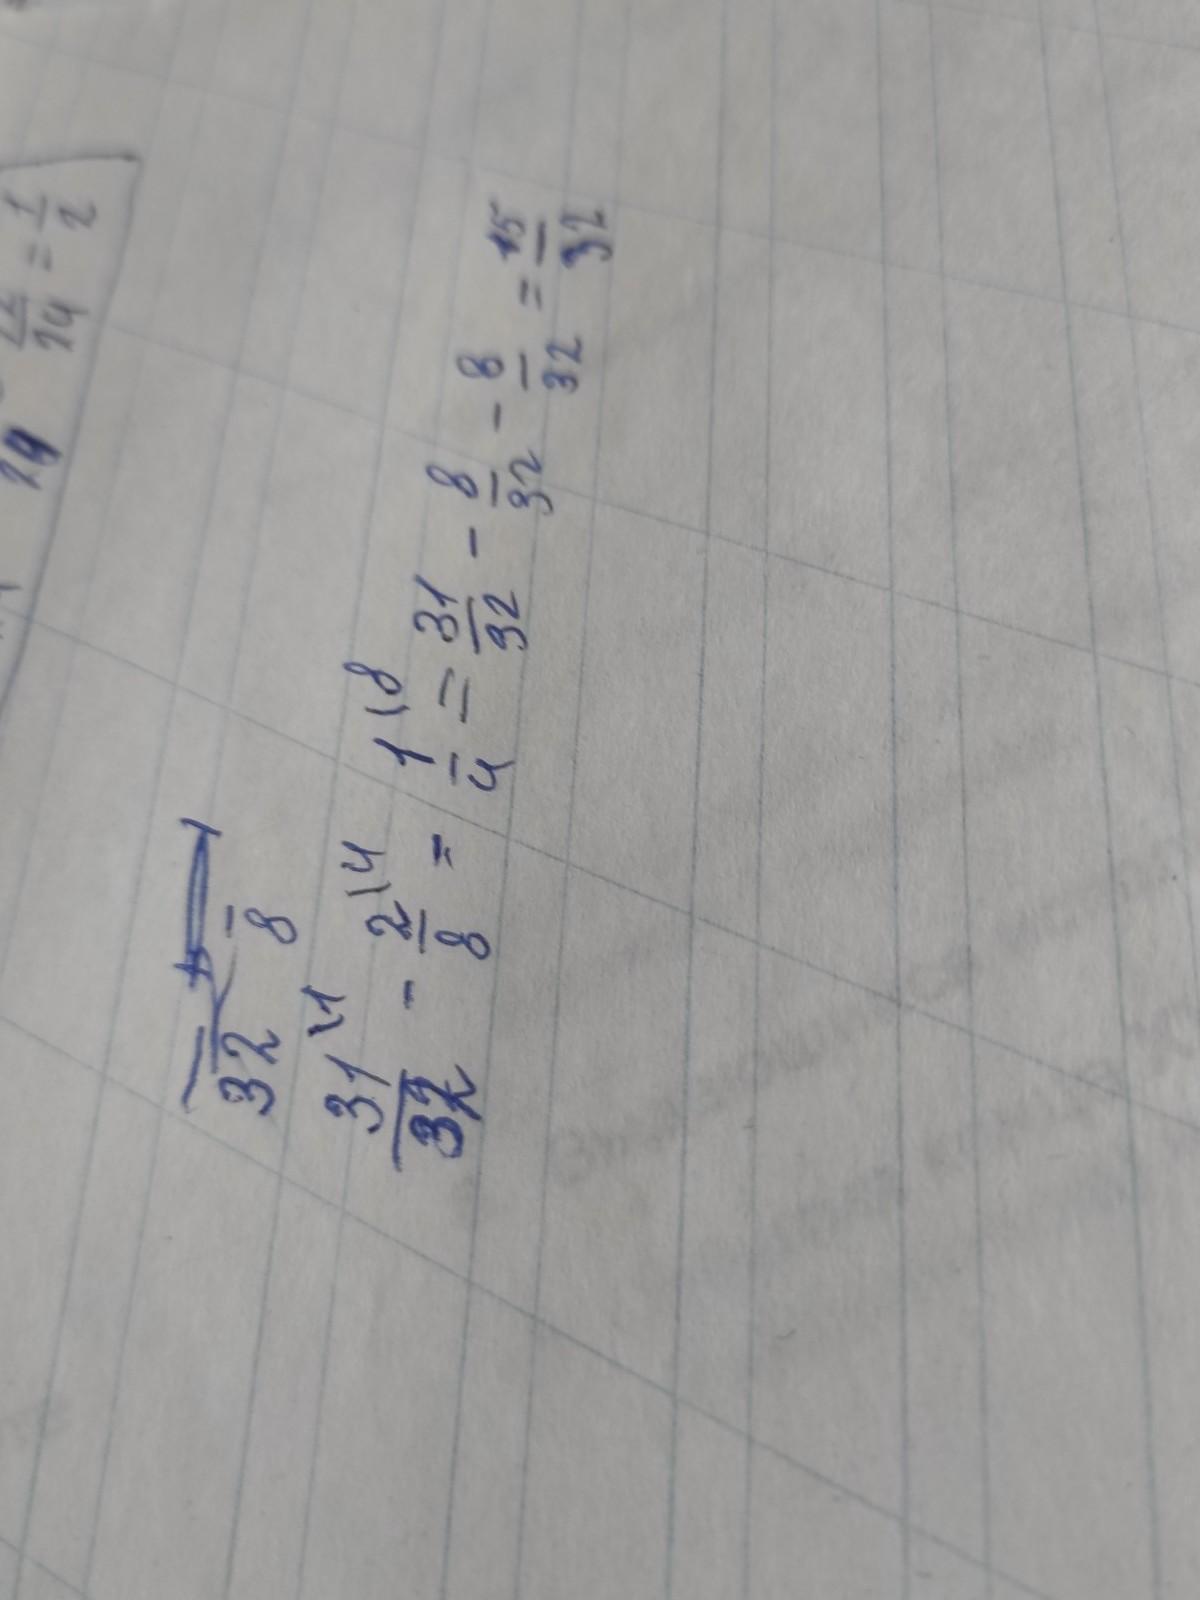 24 12/24 = 1/2
32 8
31/32 \1 - 2/8 \4 = 1/4 \8 = 31/32 - 8/32 - 8/32 = 15/32